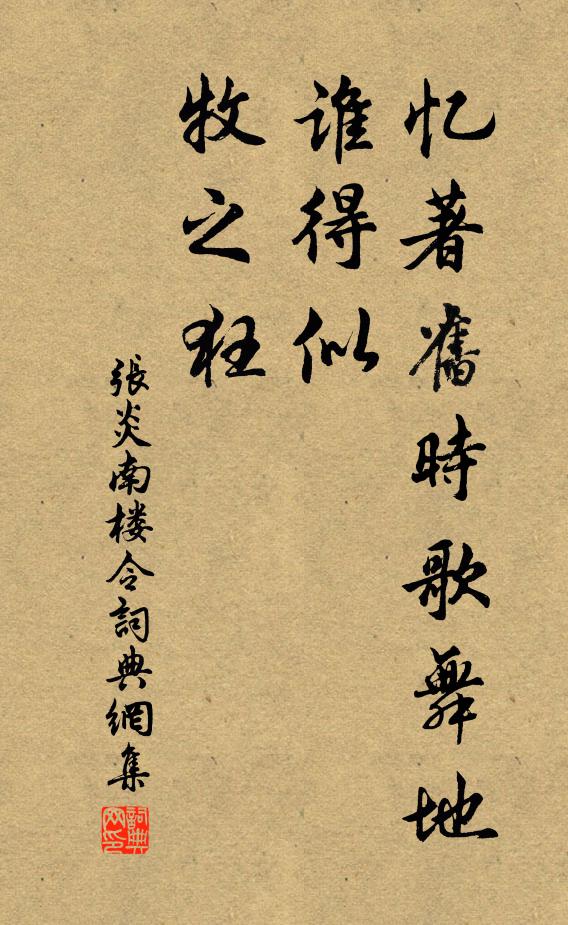 忆著舊時歌舞地
谁得似
牧之狂
張炎南楼令詞典網集
詞典网印